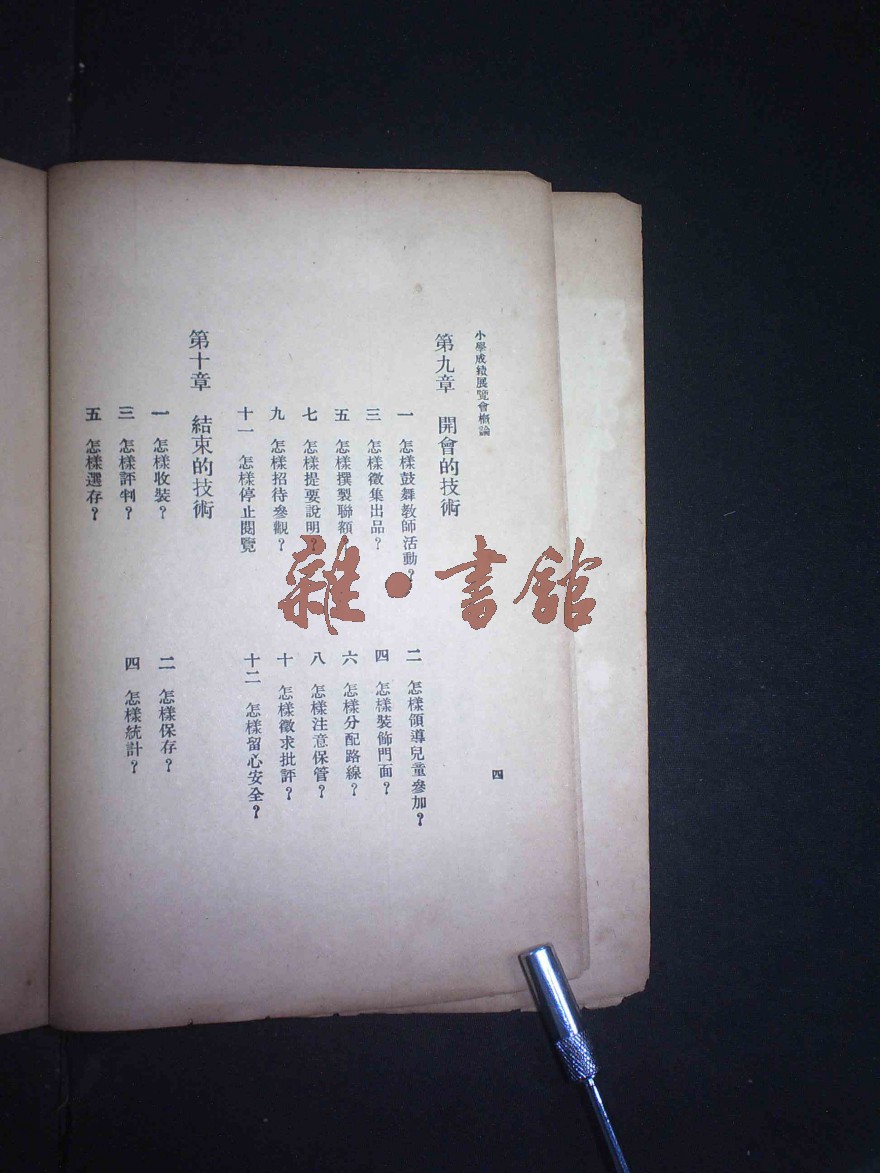 小學成績展覽會槪論
四
第九章　開會的技術
一　怎樣鼓舞教師活動？
二　怎樣領導兒童參加？
三　怎樣徵集出品？
四　怎樣裝飾門面？
五　怎樣撰製聯額
六　怎樣分配路線？
七　怎樣提要說明？
八　怎樣注意保管？
九　怎樣招待參觀？
十　怎樣徵求批評？
十一　怎樣停止閱覽
十二　怎樣留心安全？
第十章　結束的技術
一　怎樣收裝？
二　怎樣保存？
三　怎樣評判？
四　怎樣統計？
五　怎樣選存？
雜·書館